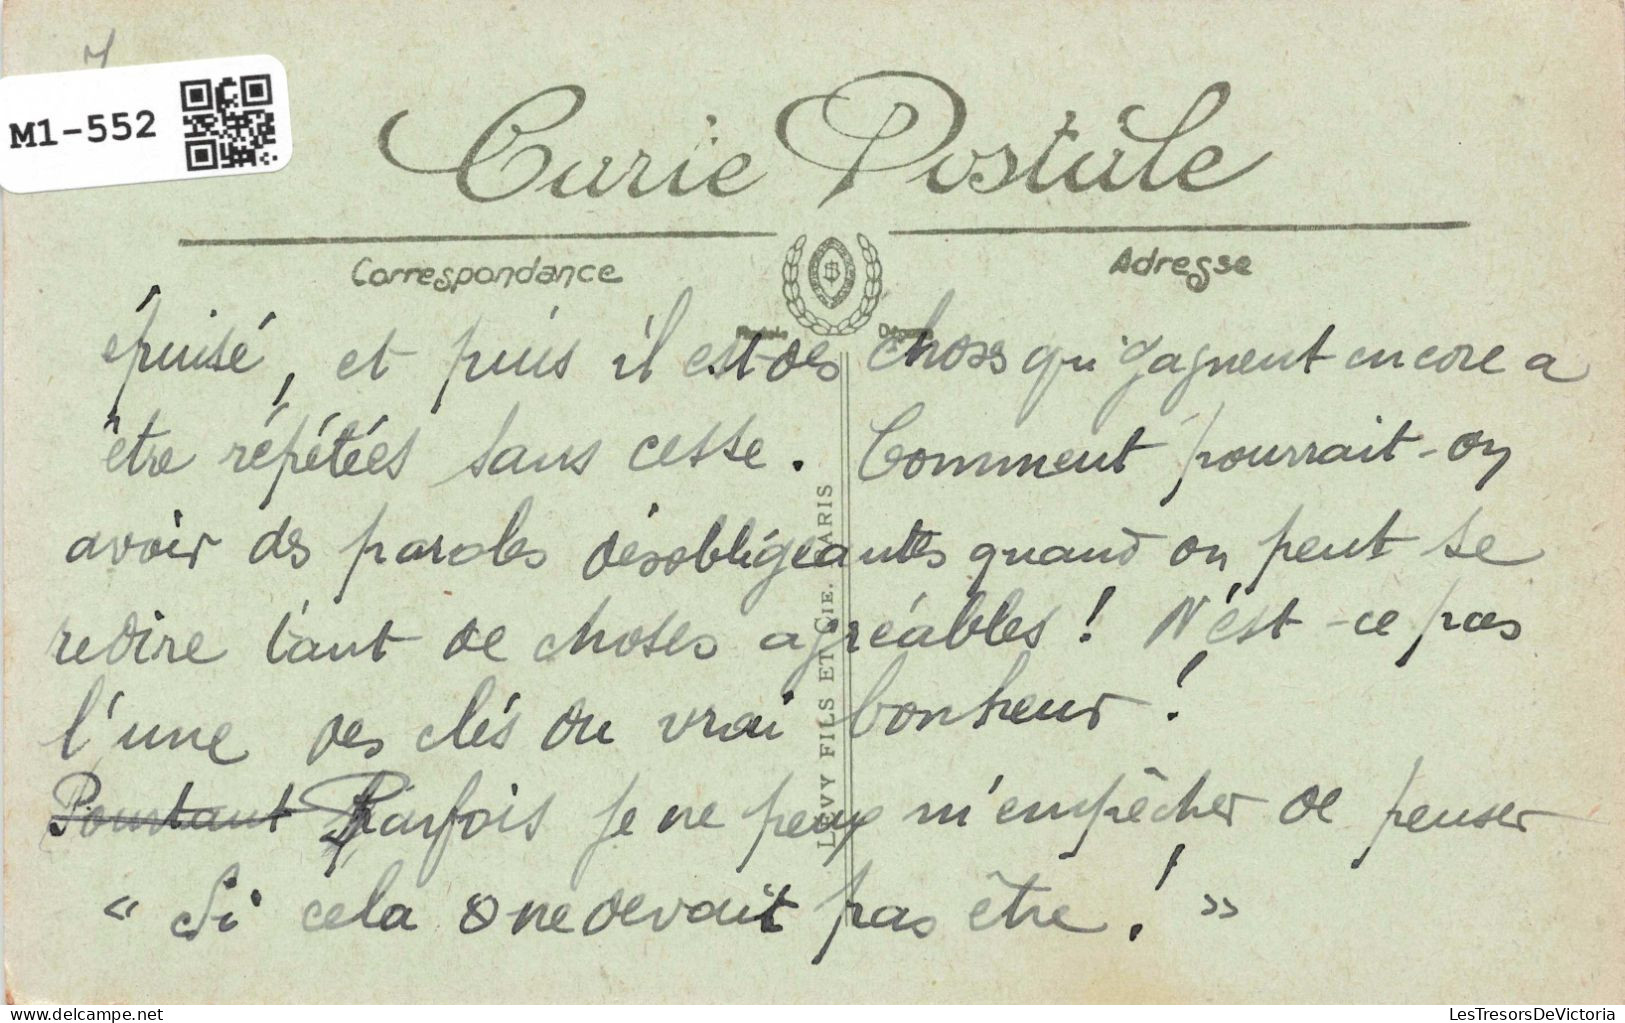 M1-552
Carte Postale
Correspondance
Adresse
épuisé, et puis il est des choses qui gagnent encore a
être répétées sans cesse. Comment pourrait-on
avoir des paroles désobligeantes quand on peut se
redire tant de choses agréables! N'est-ce pas
l'une des clés du vrai bonheur!
Pourtant Parfois je ne peux m'empêcher de penser
« Si cela ne devait pas être! »
LÉVY FILS ET CIE. PARIS
www.delcampe.net
LesTresorsDeVictoria